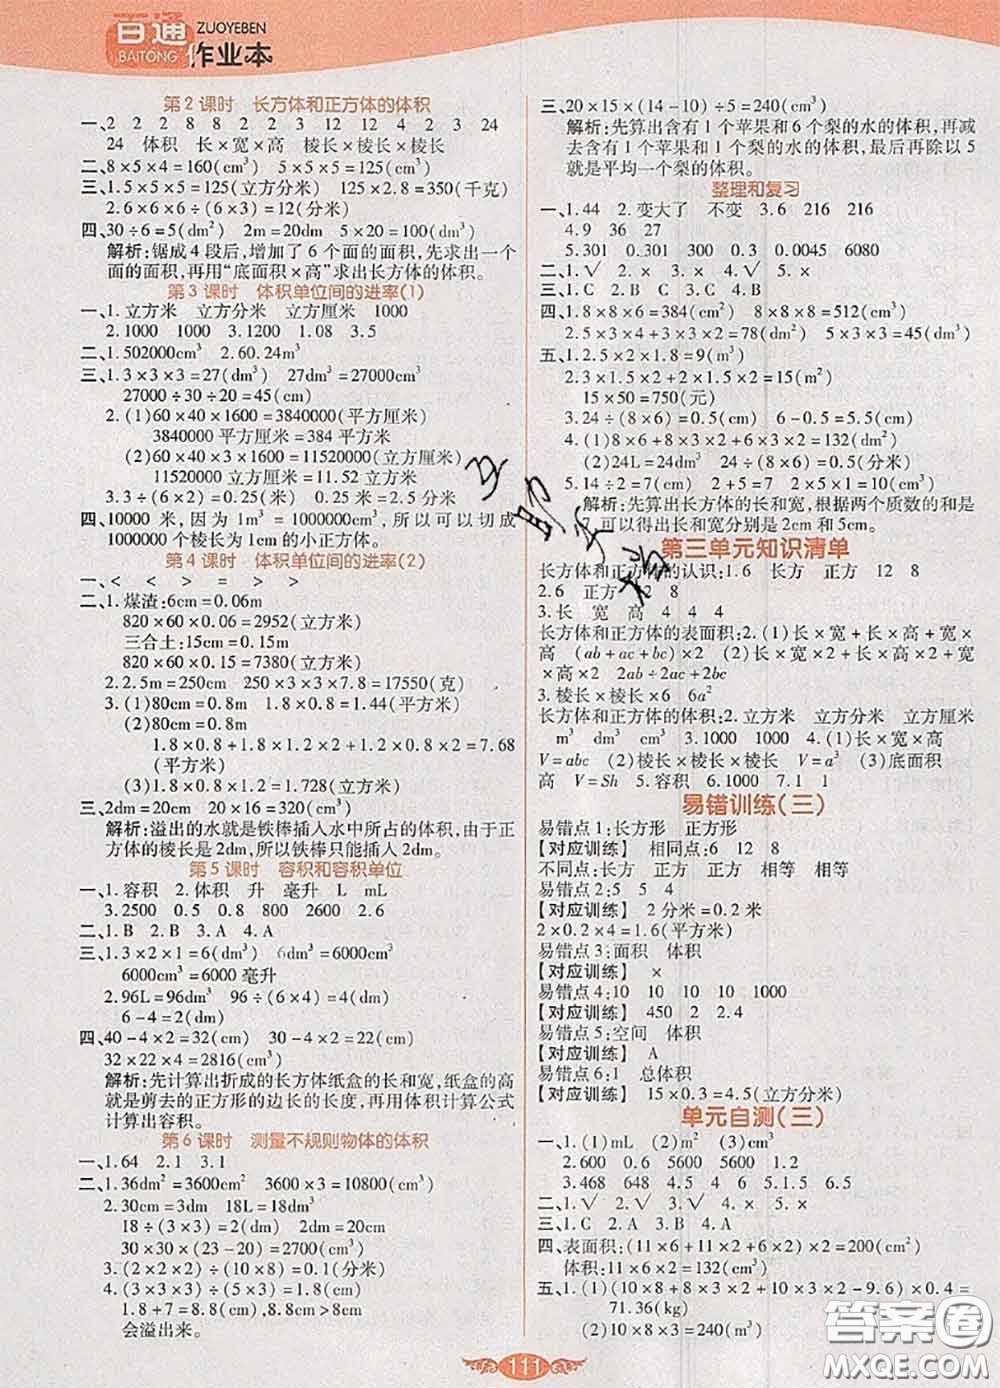 百通 ZUOYEBEN
BAITONG 作业本
第2课时 长方体和正方体的体积
一、2 2 2 8 8 2 2 3 12 12 4 2 3 24
24 体积 长×宽×高 棱长×棱长×棱长
二、8×5×4=160(cm³) 5×5×5=125(cm³)
三、1.5×5×5=125(立方分米) 125×2.8=350(千克)
2.6×6×6÷(6×3)=12(分米)
四、30÷6=5(dm²) 2m=20dm 5×20=100(dm³)
解析:锯成4段后,增加了6个面的面积,先求出一个
面的面积,再用“底面积×高”求出长方体的体积。
第3课时 体积单位间的进率(1)
一、1.立方米 立方分米 立方厘米 1000
2.1000 1000 3.1200 1.08 3.5
二、1.502000cm³ 2.60.24m³
三、1.3×3×3=27(dm³) 27dm³=27000cm³
27000÷30÷20=45(cm)
2.(1)60×40×1600=3840000(平方厘米)
3840000平方厘米=384平方米
(2)60×40×3×1600=11520000(立方厘米)
11520000立方厘米=11.52立方米
3.3÷(6×2)=0.25(米) 0.25×8=2(米)
四、10000米,因为1m³=1000000cm³,所以可以切成
1000000个棱长为1cm的小正方体。
第4课时 体积单位间的进率(2)
一、< < > = > >
二、1.煤渣:6cm=0.06m
820×60×0.06=2952(立方米)
三合土:15cm=0.15m
820×60×0.15=7380(立方米)
2.2.5m=250cm 250×3×3×7.8=17550(克)
3.(1)80cm=0.8m 1.8×0.8=1.44(平方米)
(2)80cm=0.8m
1.8×0.8+1.8×1.2×2+1.2×0.8×2=7.68
(平方米)
(3)1.8×0.8×1.2=1.728(立方米)
三、2dm=20cm 20×16=320(cm³)
解析:溢出的水就是铁棒插入水中所占的体积,由于正
方体的棱长是2dm,所以铁棒只能插入2dm。
第5课时 容积和容积单位
一、1.容积 2.体积 升 毫升 L mL
3.2500 0.5 0.8 800 2600 2.6
二、1.B 2.B 3.A 4.A
三、1.3×2×1=6(dm³) 6dm³=6000cm³
6000cm³=6000毫升
2.96L=96dm³ 96÷(6×4)=4(dm)
6-4=2(dm)
四、40-4×2=32(cm) 30-4×2=22(cm)
32×22×4=2816(cm³)
解析:先计算出折成的长方体纸盒的长和宽,纸盒的高
就是剪去的正方形的边长的长度,再用体积计算公式
计算出容积。
第6课时 测量不规则物体的体积
一、1.64 2.1 3.1
二、1.36dm²=3600cm² 3600×3=10800(cm³)
2.30cm=3dm 18L=18dm³
18÷(3×3)=2(dm) 2dm=20cm
30×30×(23-20)=2700(cm³)
3.(2×2×2)÷(10×8)=0.1(cm)
4.(3×3×3)÷(5×3)=1.8(cm)
1.8+7=8.8(cm),8.8cm>8cm
会溢出来。
三、20×15×(14-10)÷5=240(cm³)
解析:先算出含有1个苹果和6个梨的水的体积,再减
去含有1个苹果和1个梨的水的体积,最后再除以5
就是平均一个梨的体积。
整理和复习
一、1.44 2.变大了 不变 3.6 216 216
4.9 36 27
5.301 0.301 300 0.3 0.0045 6080
二、1.√ 2.× 3.× 4.√ 5.×
三、1.C 2.B 3.C 4.B
四、1.8×8×6=384(cm²) 8×8×8=512(cm³)
2.5×3×4+3×3×2=78(dm²) 5×3×3=45(dm³)
五、1.2.5×2×1.8=9(m³)
2.3×1.5×2+2×1.5×2=15(m²)
15×50=750(元)
3.24÷(8×6)=0.5(cm) 6-0.5=5.5(cm)
4.(1)8×6+8×3×2+6×3×2=132(dm²)
(2)24L=24dm³ 24÷(8×6)=0.5(分米)
5.14÷2=7(cm) 2+5=7 2×5×1=10(cm³)
解析:先算出长方体的长和宽,根据两个质数的和是
7,可以得出长和宽分别是2cm和5cm。
第三单元知识清单
长方体和正方体的认识:1.6 长方 正方 12 8
2.6 正方 12 8
3.长 宽 高 4 4 4
长方体和正方体的表面积:2.(1)长×宽+长×高+宽×
高 (ab+ac+bc)×2 (2)长×宽×2+长×高×2+宽
×高×2 2ab+2ac+2bc
3.棱长×棱长×6 6a²
长方体和正方体的体积:2.立方米 立方分米 立方厘米
m³ dm³ cm³ 3.1000 1000 4.(1)长×宽×高
V=abc (2)棱长×棱长×棱长 V=a³ (3)底面积
高 V=Sh 5.容积 6.1000 7.1 1
易错训练(三)
易错点1:长方形 正方形
【对应训练】 相同点:6 12 8
不同点:长方 正方 正方 相等 相等
易错点2:5 5 4
【对应训练】 2分米=0.2米
2×0.2×4=1.6(平方米)
易错点3:面积 体积
【对应训练】 ×
易错点4:10 10 10 1000
【对应训练】 450 2 2.4
易错点5:空间 体积
【对应训练】 A
易错点6:1 总体积
【对应训练】 15×0.3=4.5(立方分米)
单元自测(三)
一、1.(1)mL (2)m² (3)cm³
2.600 0.6 5600 5600
3.468 648 4.5 4 6 5.1.5 6.5
二、1.√ 2.√ 3.× 4.× 5.×
三、1.C 2.A 3.B 4.A
四、表面积:(11×6+11×2+6×2)×2=200(cm²)
体积:11×6×2=132(cm³)
五、1.(1)(10×8+8×3×2+10×3×2-9.6)×0.4=
71.36(kg)
(2)10×8×3=240(m³)
111
答案圈
MXQE.COM